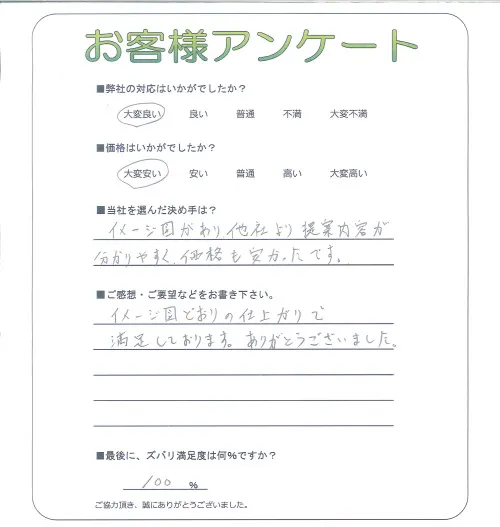 お客様アンケート
■弊社の対応はいかがでしたか？
大変良い 良い 普通 不満 大変不満
■価格はいかがでしたか？
大変安い 安い 普通 高い 大変高い
■当社を選んだ決め手は？
イメージ図があり他社より提案内容が
分かりやすく、価格も安かったです。
■ご感想・ご要望などをお書き下さい。
イメージ図どおりの仕上がりで
満足しております。ありがとうございました。
■最後に、ズバリ満足度は何%ですか？
100 %
ご協力頂き、誠にありがとうございました。